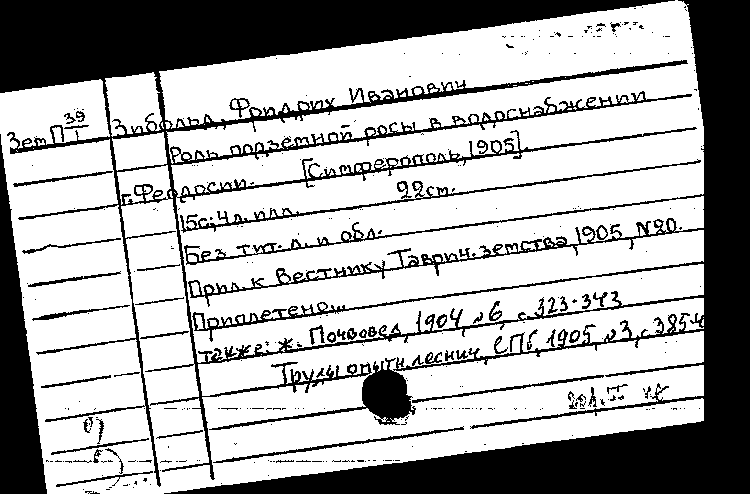 Зем П 39/1
Зибольд, Фридрих Иванович
Роль подземной росы в водоснабжении
г. Феодосии. [Симферополь, 1905].
15с; 4л. илл. 22см.
Без тит. л. и обл.
Прил. к Вестнику Таврич. земства, 1905, №20.
Приплетено...
также: ж. Почвовед, 1904, №6, с. 323-343
Труды опытн. леснич, СПб, 1905, №3, с. 385-4